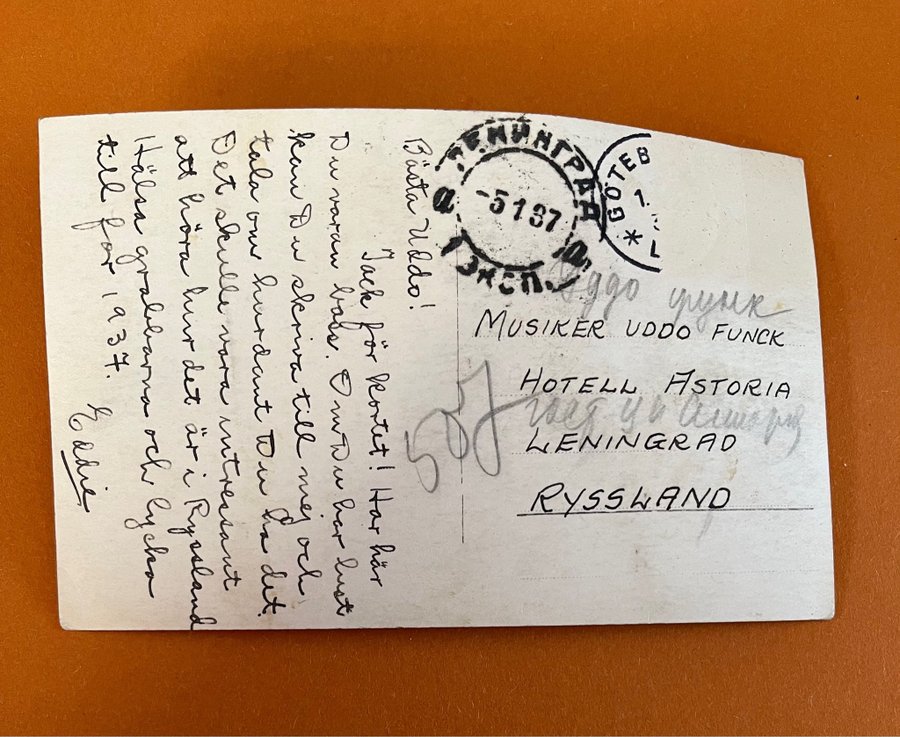 Bästa Uddo!
Tack för kortet! Har här
Du varan babs. Om Du har lust
kan Du skriva till mej och
tala om hurdant Du ha det.
Det skulle vara intressant
att höra hur det är i Ryssland
Hälsa grabbarna och lycka
till för 1937.
Eddie
ЛЕНИНГРАД
-5 1 37
ЭКСП.
GÖTEB
Уддо функ
MUSIKER UDDO FUNCK
HOTELL ASTORIA
LENINGRAD
RYSSLAND
507